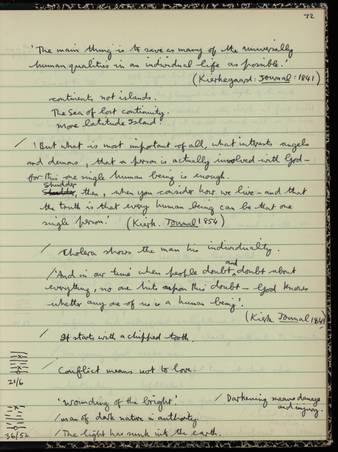 72
'The main thing is to save as many of the universally
human qualities in an individual life as possible.'
(Kierkegaard: Journal: 1841)
continents not islands.
The Sea of lost continuity.
more latitude Island!
/ 'But what is most important of all, what interests angels
and demons, that a person is actually involved with God –
for this one single human being is enough.
Shudder
then, when you consider how we live – and that
the truth is that every human being can be that one
single person.' (Kierk. Journal 1854)
/ Cholera shows the man his individuality.
/ 'And in our time when people doubt and doubt about
everything, no one hits upon this doubt – God knows
whether any one of us is a human being'.
(Kierk Journal 184
/ It starts with a chipped tooth.
/ Conflict means not to love.
21/6
'Wounding of the bright' / Darkening means damage
and injury.
/ man of dark nature in authority.
36/52
/ The light has sunk into the earth.